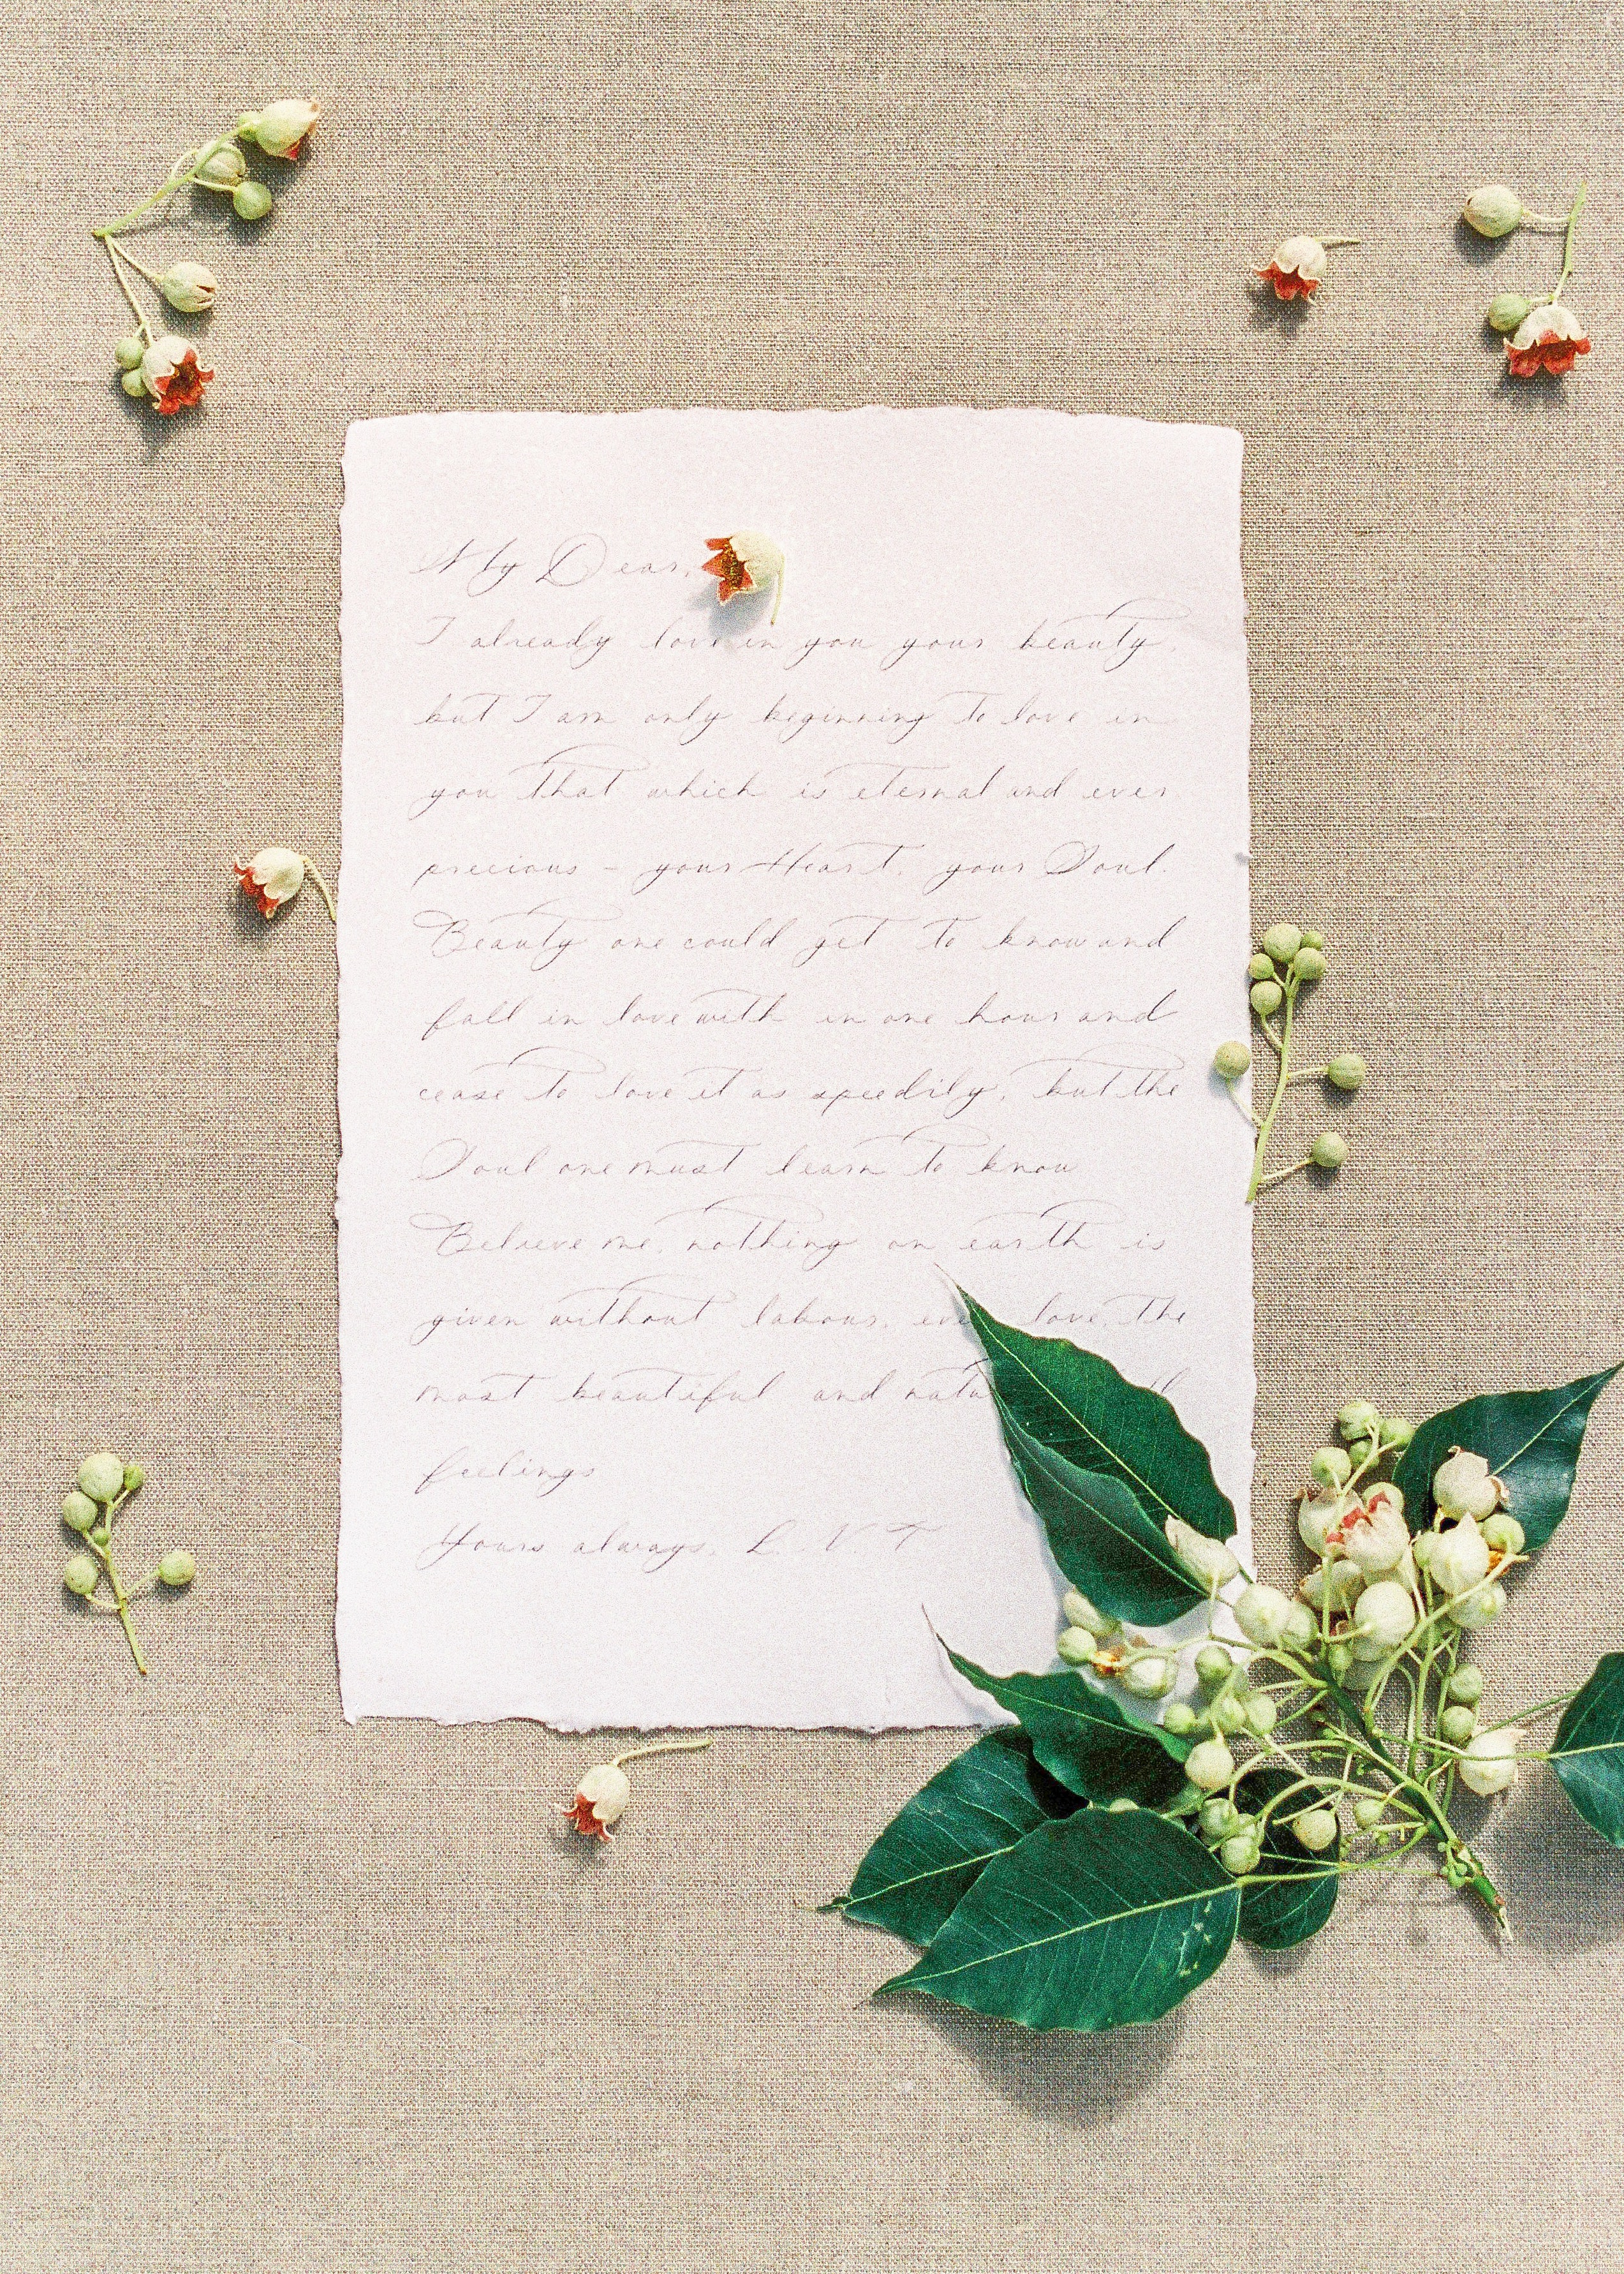 My Dear,
I already love in you your beauty,
but I am only beginning to love in
you that which is eternal and ever
precious - your Heart, your Soul.
Beauty one could get to know and
fall in love with in one hour and
cease to love it as speedily, but the
Soul one must learn to know
Believe me, nothing on earth is
given without labour, even love, the
most beautiful and
feelings
Yours always, L. V. T